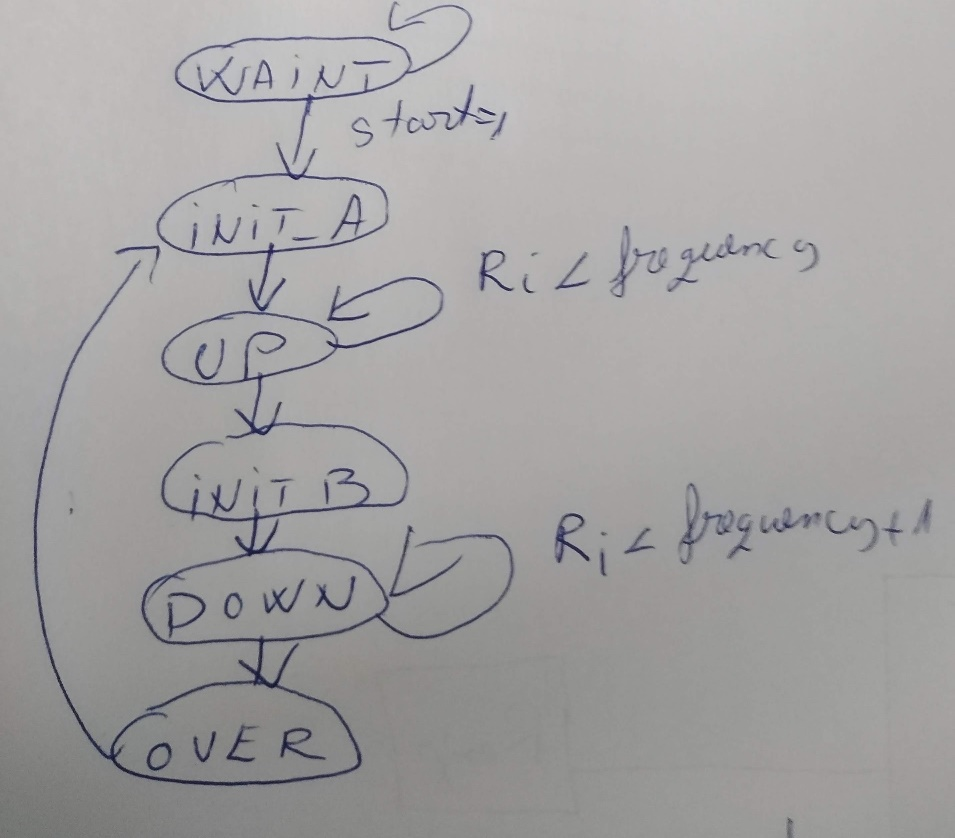 WAINT
start=1
INIT_A
Ri < frequency
UP
INIT B
Ri < frequency+1
DOWN
OVER